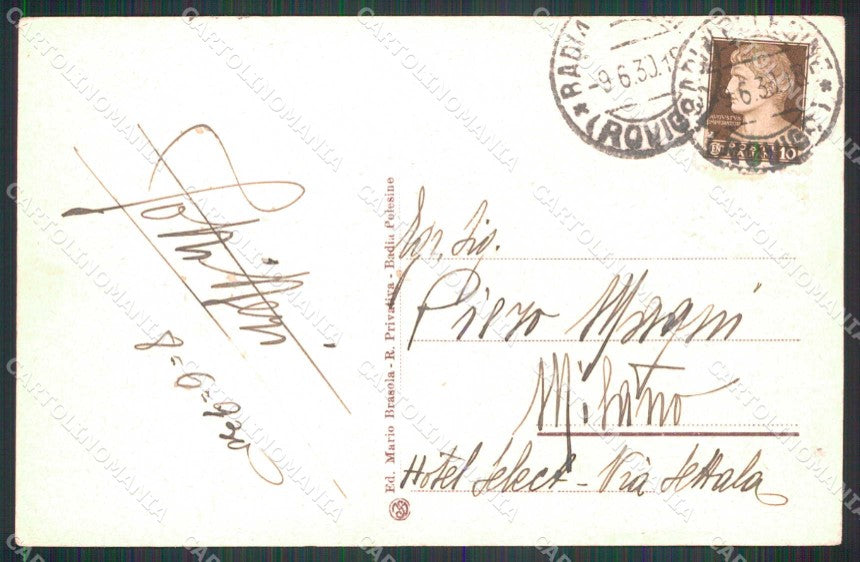 8-6-930
Ed. Mario Brasola - R. Privativa - Badia Polesine
Egr. Sig.
Piero Magni
Milano
Hotel Select - Via Settala
BADIA
-9.6.30.18
(ROVIGO)
POLESINE
6.30
(ROVIGO)
AVGVSTVS
IMPERATOR
10
CARTOLINOMANIA